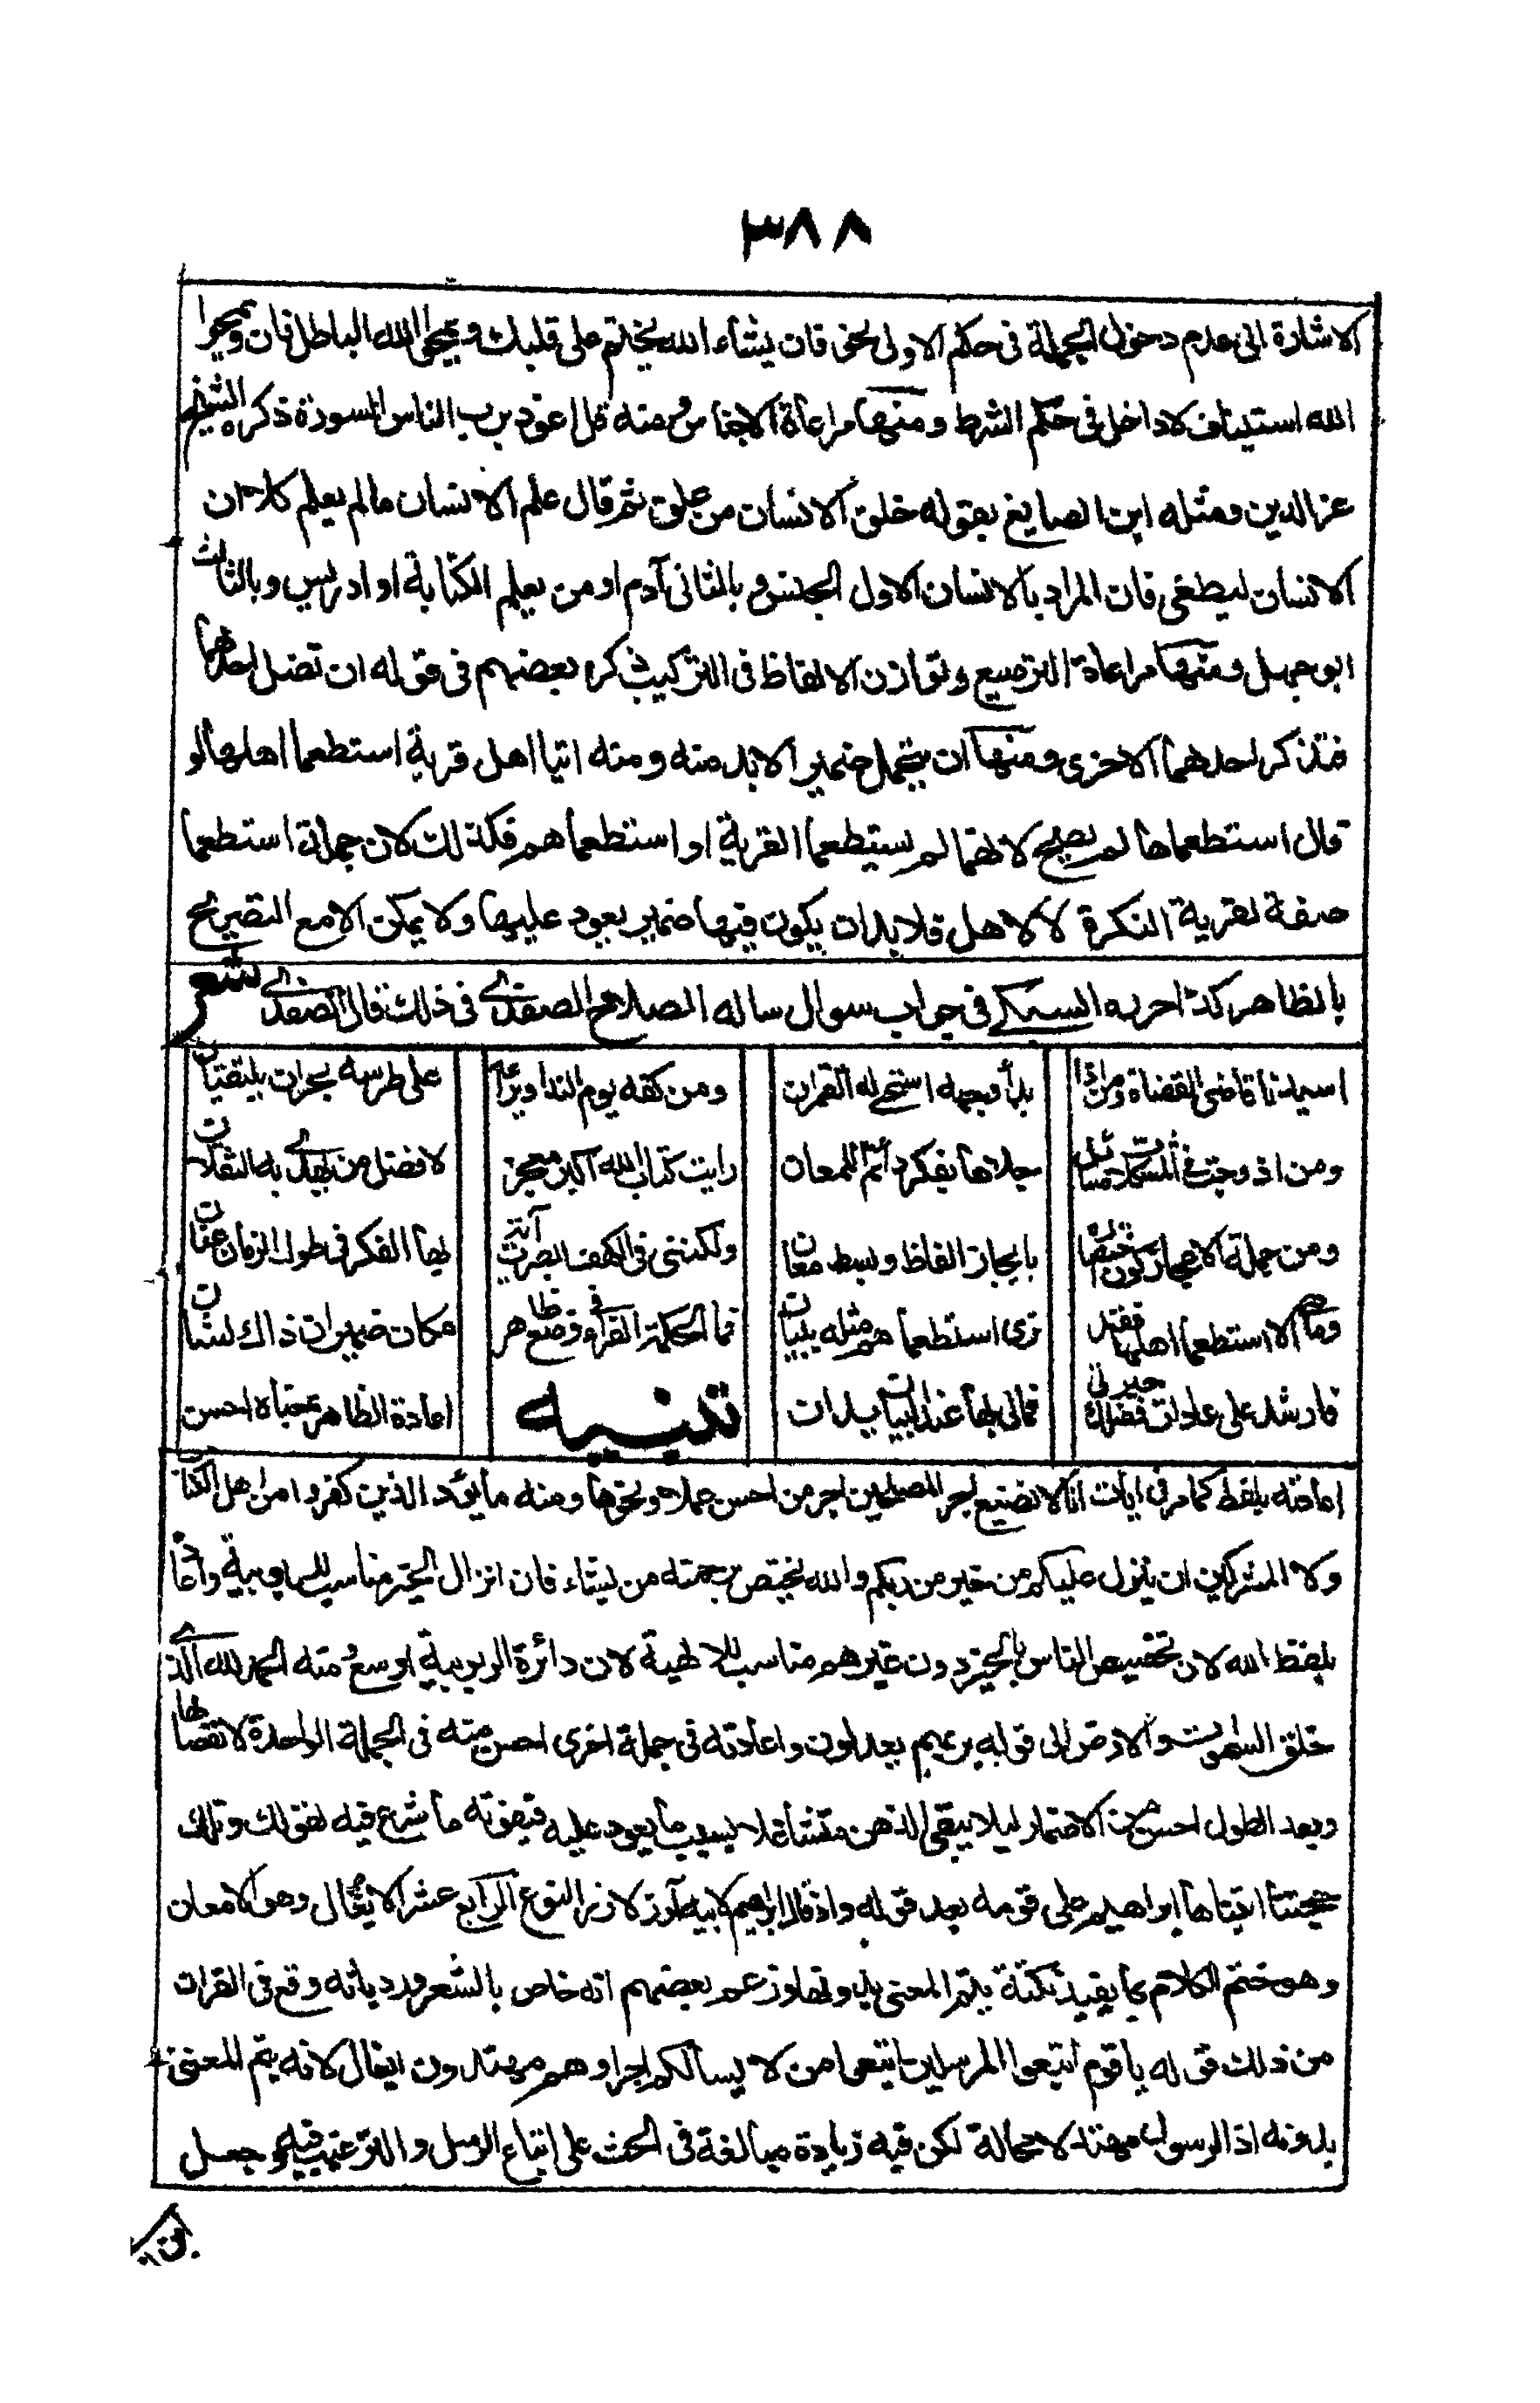 ٣٨٨
الاشارة الى عدم دخول الجملة فى حكم الاولى نحو فان يشاء الله يختم على قلبك ويمحوا الله الباطل فان ويمحوا
الله استيناف لا داخل فى حكم الشرط ومنها مراعاة الاجناس ومنه قل اعوذ برب الناس السورة ذكره الشيخ
عز الدين ومثله ابن الصايغ بقوله خلق الانسان من علق ثم قال علم الانسان مالم يعلم كلا ان
الانسان ليطغى فان المراد بالانسان الاول الجنس وبالثانى آدم او من يعلم الكتابة او ادريس وبالثالث
ابو جهل ومنها مراعاة الترصيع وتوازن الالفاظ فى التركيب ذكره بعضهم فى قوله ان تضل احدهما
فتذكر احدهما الاخرى ومنها ان يتحمل ضميرا لابد منه ومنه اتيا اهل قرية استطعما اهلها لو
قال استطعماها لم يصح لانهما لم يستطعما القرية او استطعماهم فكذلك لان جملة استطعما
صفة لقرية النكرة لا لاهل فلا بد ان يكون فيها ضمير يعود عليها ولا يمكن الا مع التصريح
بالظاهر كذا حرره السبكى فى جواب سوال ساله الصلاح الصفدى فى ذلك قال الصفدى شعر
اسيدنا قاضى القضاة ومن اذا بدأ وجهه استحى له القمران ومن كفه يوم الندا ويراعه على طرسه بحران يلتقيان
ومن اذ دجت فى المشكلات مسائل جلاها بفكر دائم اللمعان رايت كتاب الله اكبر معجز لافضل من يهدى به الثقلان
ومن جملة الاعجاز كون اختصاره بايجاز الفاظ وبسط معان ولكننى فى الكهف ابصرت آية بها الفكر فى طول الزمان عنان
وما هى الا استطعما اهلها فقد نرى استطعماهم مثله ببيان فما الحكمة الغراء فى وضع ظاهر مكان ضمير ان ذاك لشان
فارشد على عادات فضلك حيرتى فمالى بها عند البيان يدان تنبيه اعادة الظاهر بمعناه احسن
اعادته بلفظه كما مر فى ايات انا لا نضيع اجر المصلحين اجر من احسن عملا ونحوها ومنه ما يود الذين كفروا من اهل الكتاب
ولا المشركين ان ينزل عليكم من خير من ربكم والله يختص برحمته من يشاء فان انزال الخير مناسب للربوبية واعاده
بلفظ الله لان تخصيص الناس بالخير دون غيرهم مناسب للالهية لان دائرة الربوبية اوسع ومنه الحمد لله الذى
خلق السموات والارض الى قوله بربهم يعدلون واعادته فى جملة اخرى احسن منه فى الجملة الواحدة لانفصالها
وبعد الطول احسن من الاضمار ليلا يبقى الذهن متشاغلا بسبب ما يعود عليه فيفوته ما شرع فيه لقوله وتلك
حجتنا اتيناها ابراهيم على قومه بعد قوله واذ قال ابراهيم لابيه آزر النوع الرابع عشر الايغال وهو الامعان
وهو ختم الكلام بما يفيد نكتة يتم المعنى بدونها وزعم بعضهم انه خاص بالشعر ورد بانه وقع فى القران
من ذلك قوله يا قوم اتبعوا المرسلين اتبعوا من لا يسالكم اجرا وهم مهتدون ايغال لانه يتم المعنى
بدونه اذ الرسول مهتد لا محالة لكن فيه زيادة مبالغة فى الحث على اتباع الرسل والترغيب فيه وجعل